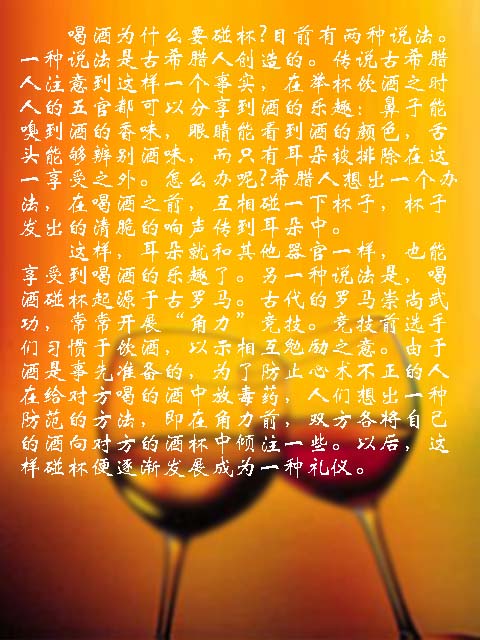 喝酒为什么要碰杯?目前有两种说法。
一种说法是古希腊人创造的。传说古希腊
人注意到这样一个事实，在举杯饮酒之时
人的五官都可以分享到酒的乐趣：鼻子能
嗅到酒的香味，眼睛能看到酒的颜色，舌
头能够辨别酒味，而只有耳朵被排除在这
一享受之外。怎么办呢?希腊人想出一个办
法，在喝酒之前，互相碰一下杯子，杯子
发出的清脆的响声传到耳朵中。
这样，耳朵就和其他器官一样，也能
享受到喝酒的乐趣了。另一种说法是，喝
酒碰杯起源于古罗马。古代的罗马崇尚武
功，常常开展“角力”竞技。竞技前选手
们习惯于饮酒，以示相互勉励之意。由于
酒是事先准备的，为了防止心术不正的人
在给对方喝的酒中放毒药，人们想出一种
防范的方法，即在角力前，双方各将自己
的酒向对方的酒杯中倾注一些。以后，这
样碰杯便逐渐发展成为一种礼仪。